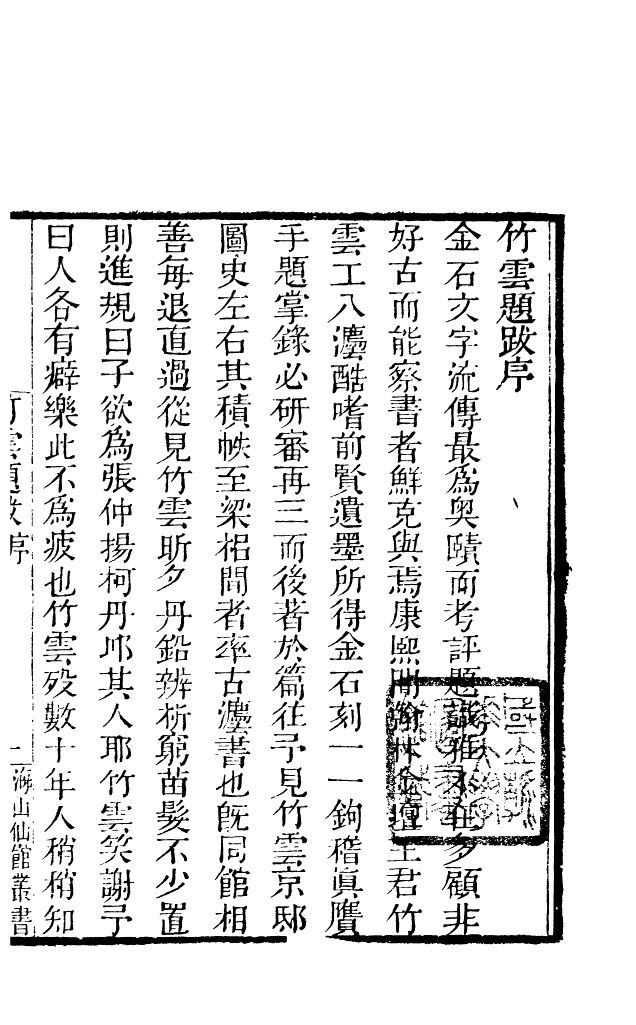 竹雲題跋序
金石文字流傳最爲奧賾而考評題識雅不在多顧非
好古而能察書者鮮克與焉康熙間翰林金壇王君竹
雲工八灋酷嗜前賢遺墨所得金石刻一一鉤稽眞贋
手題掌錄必研審再三而後著於篇往予見竹雲京邸
圖史左右其積帙至梁梠間者率古灋書也旣同館相
善每退直過從見竹雲昕夕丹鉛辨析窮苗髮不少置
則進規曰子欲爲張仲揚柯丹邱其人耶竹雲笑謝予
曰人各有癖樂此不爲疲也竹雲歿數十年人稍稍知
竹雲題跋序 一 海山仙館叢書